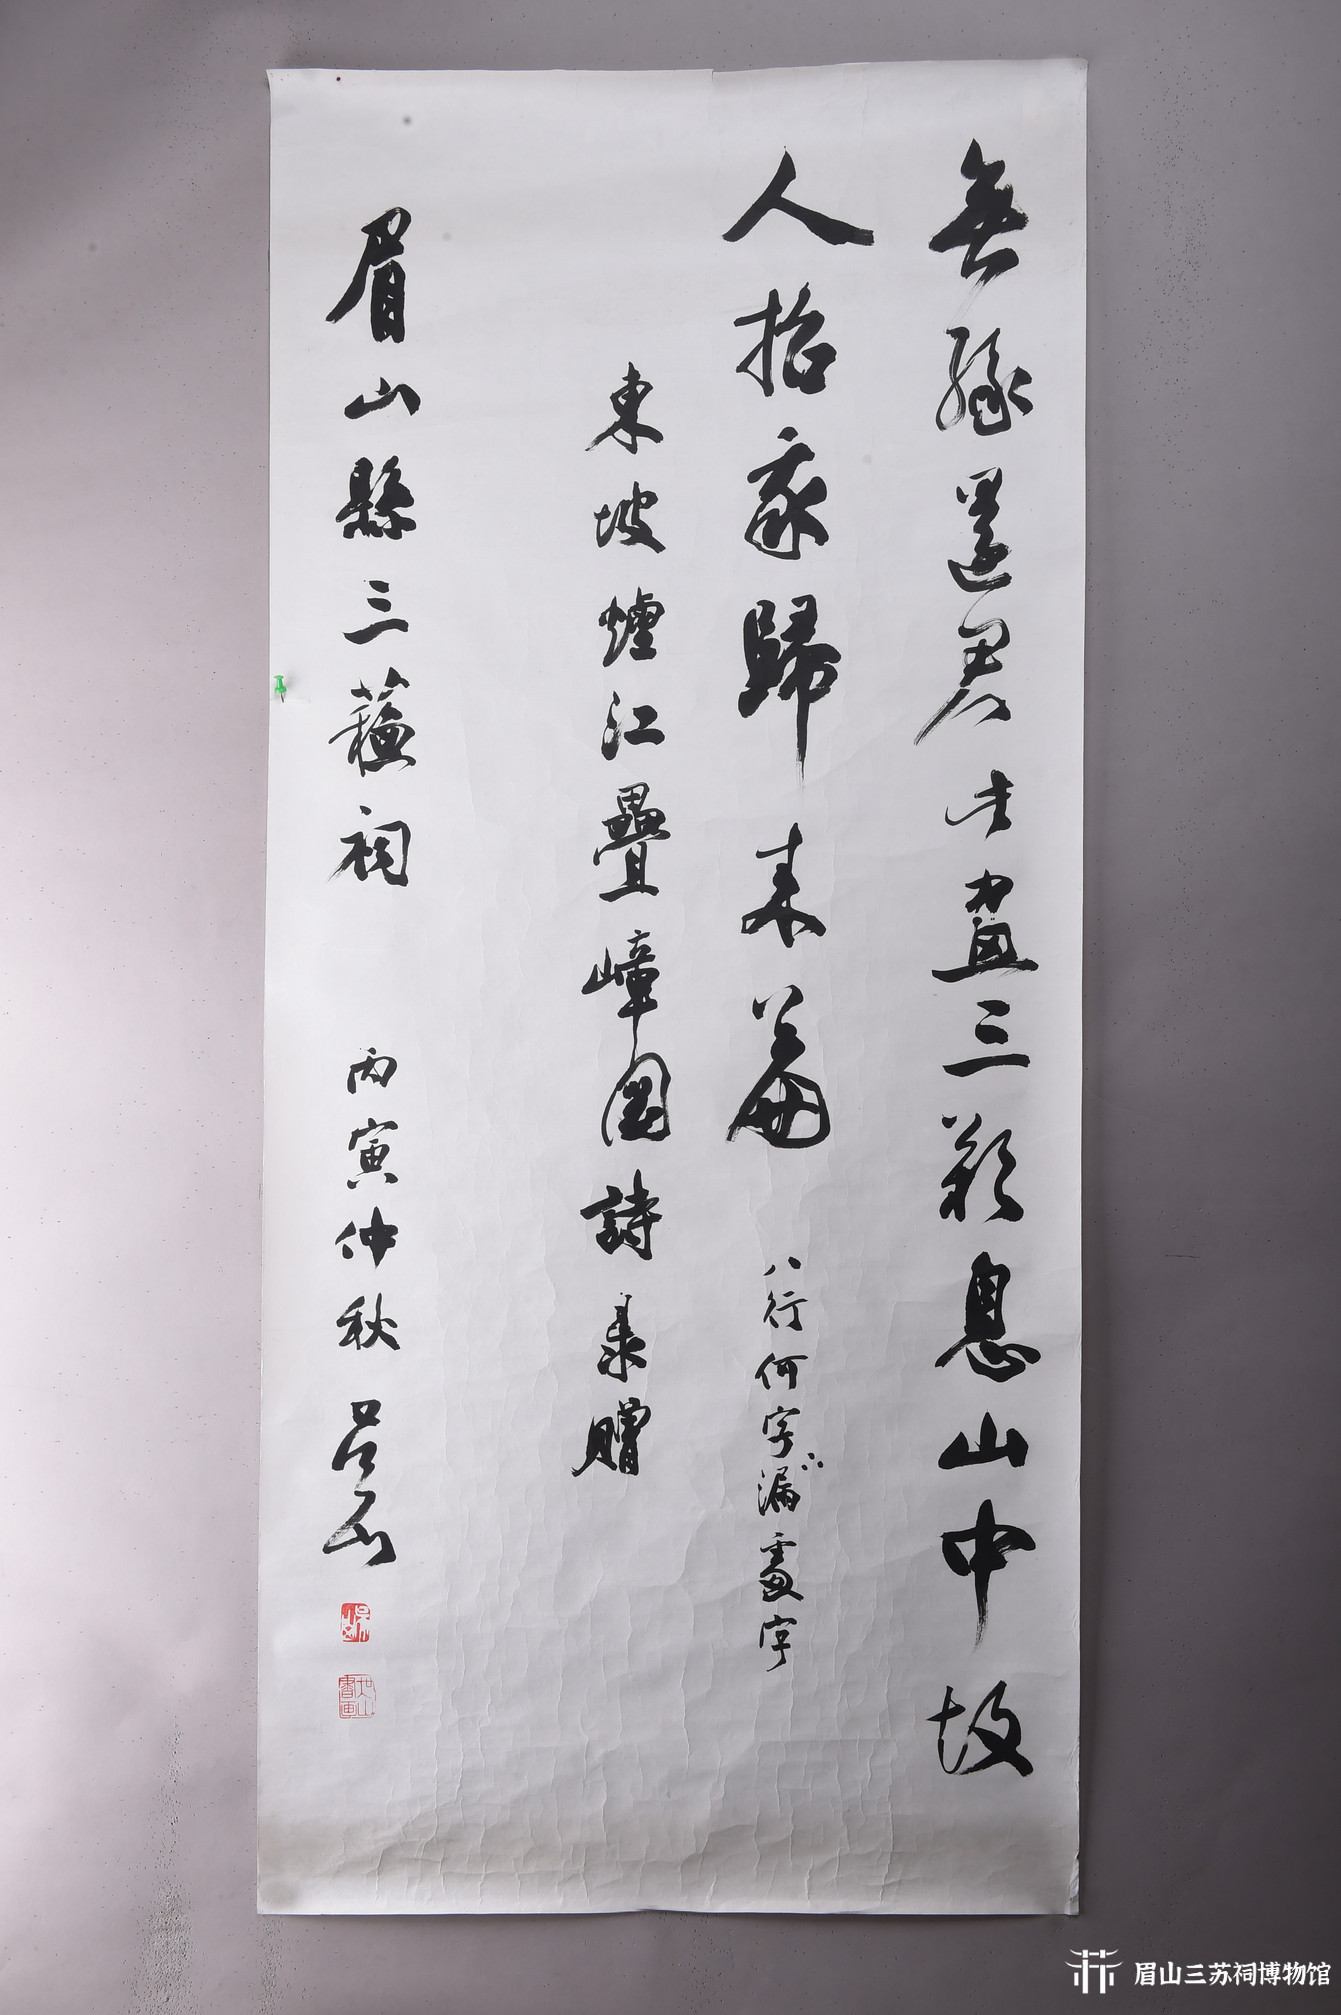 無緣還君此畫三歎息山中故
人招我歸來篇 八行何字漏處字
東坡煙江疊嶂圖詩贈
眉山縣三蘇祠 丙寅仲秋 吴山
眉山三苏祠博物馆